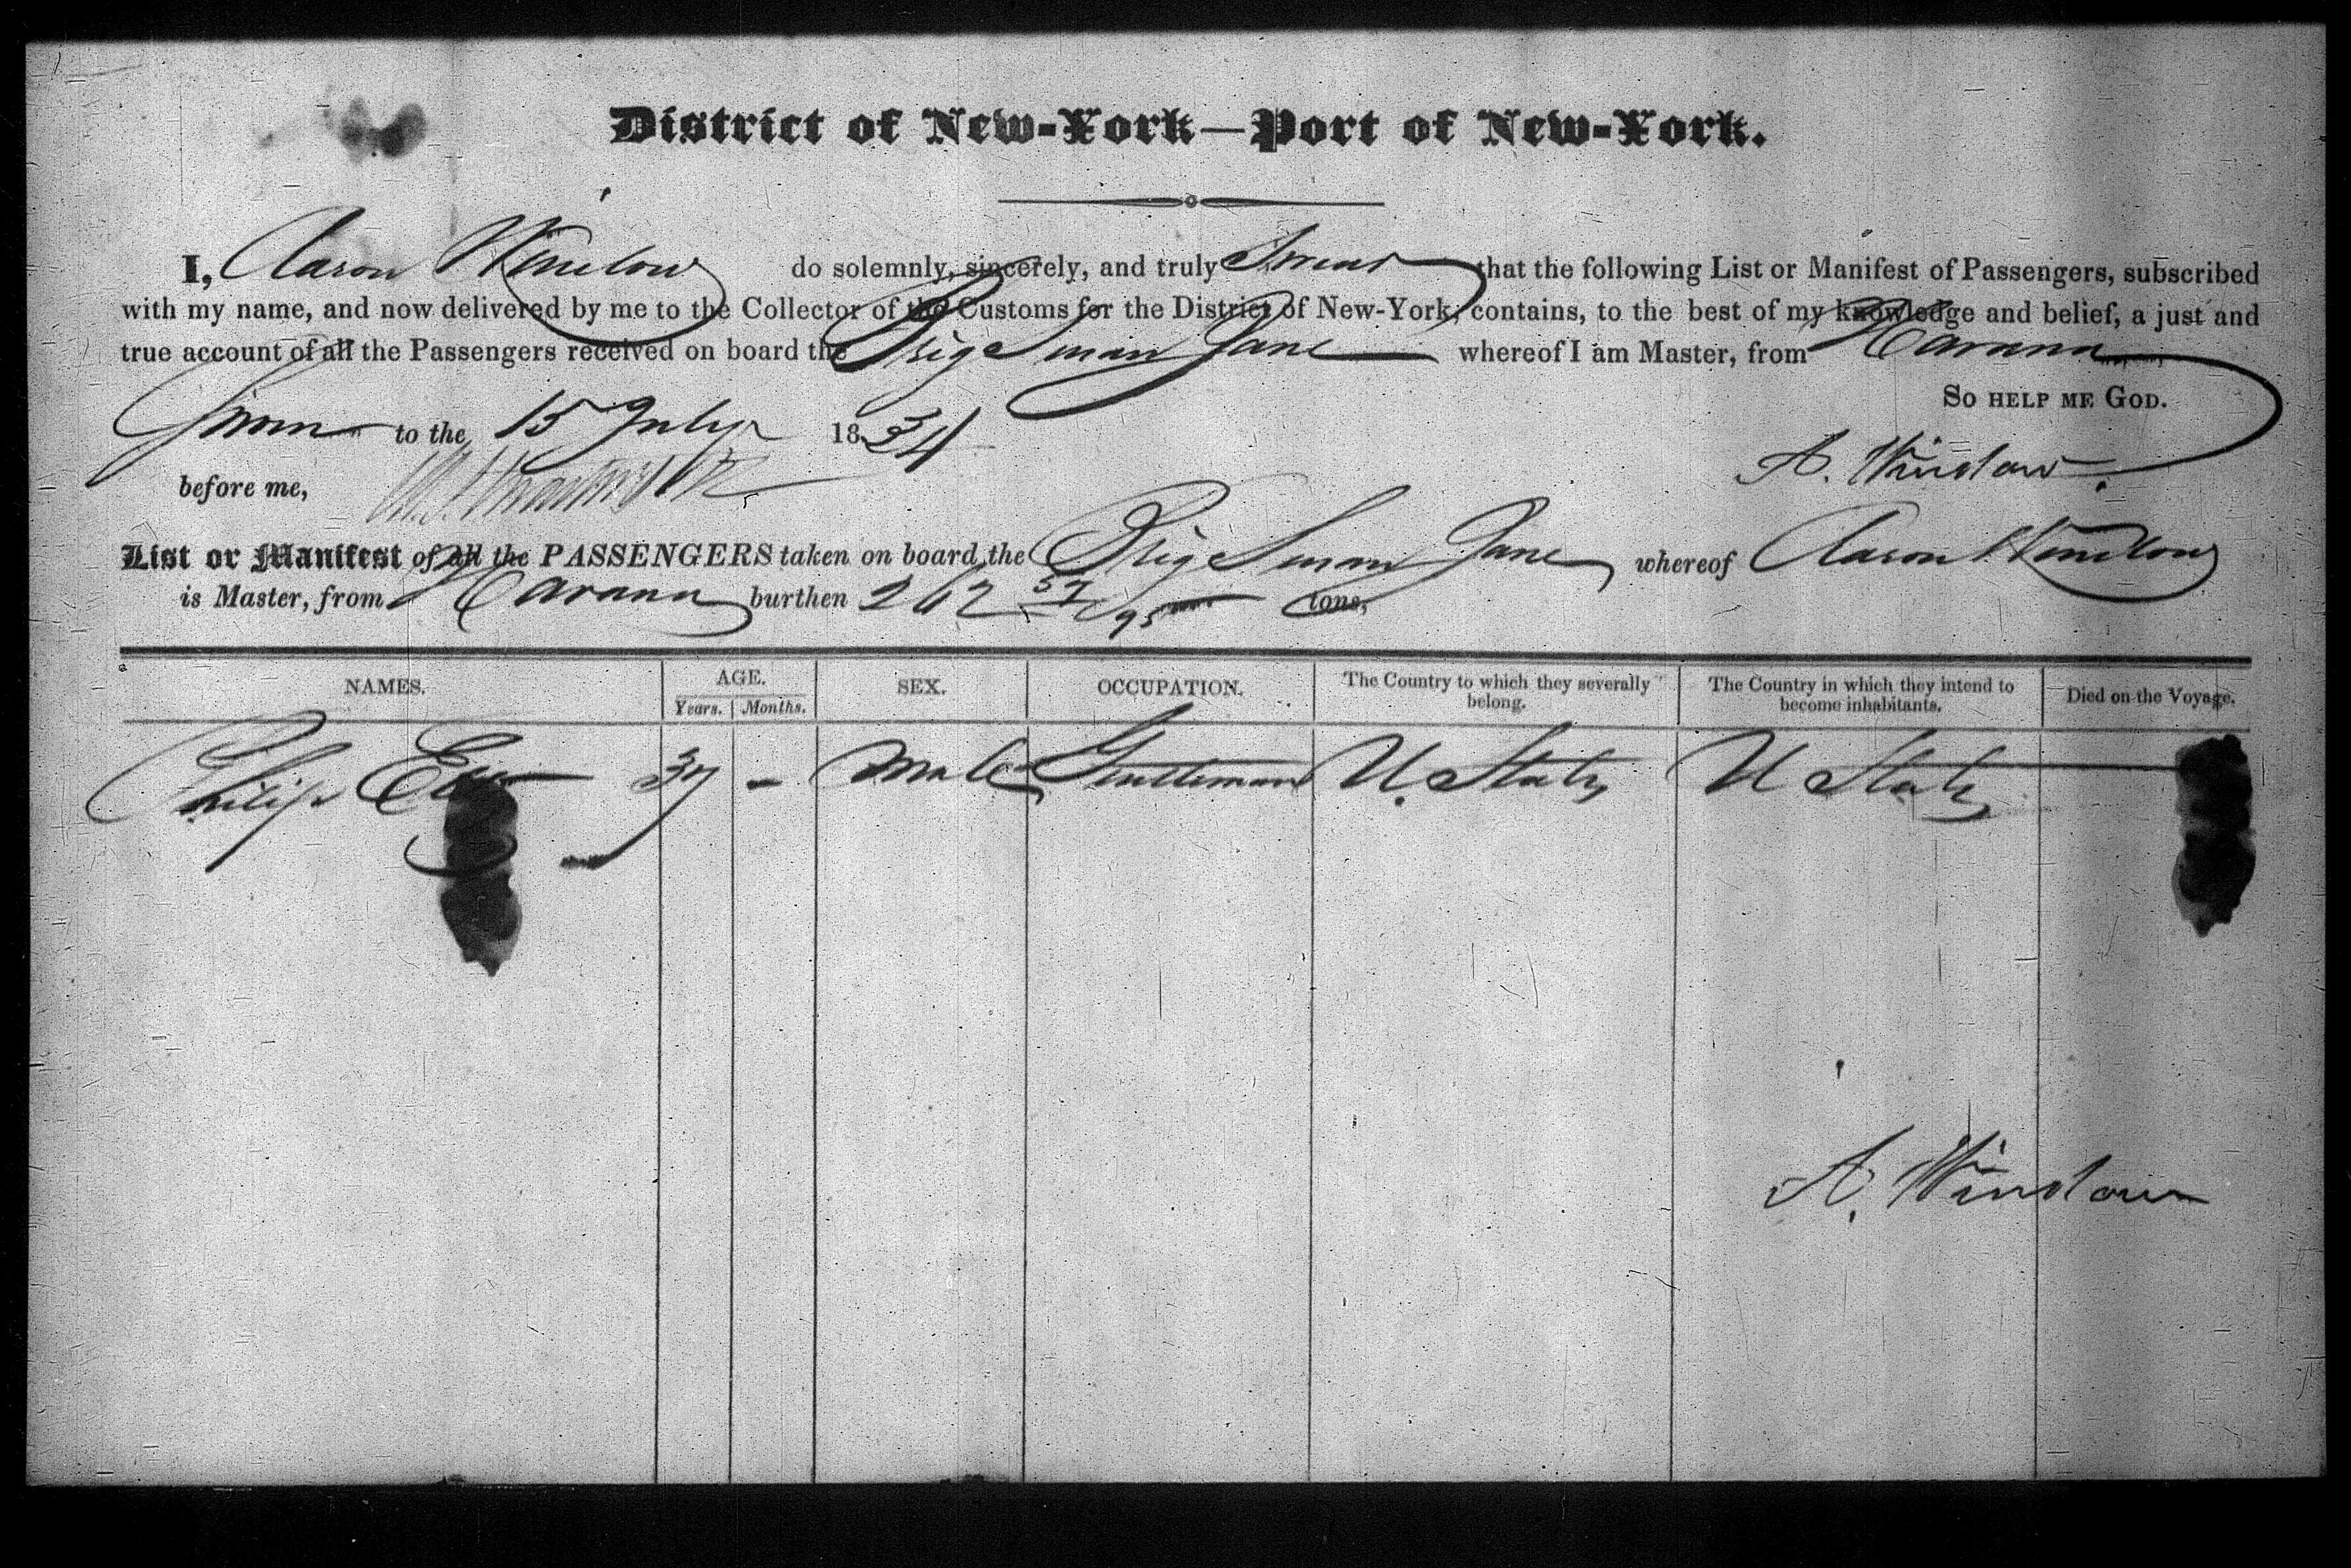 District of New-York—Port of New-York.
I, Aaron Winslow do solemnly, sincerely, and truly Swear that the following List or Manifest of Passengers, subscribed
with my name, and now delivered by me to the Collector of the Customs for the District of New-York, contains, to the best of my knowledge and belief, a just and
true account of all the Passengers received on board the Brig Susan Jane whereof I am Master, from Havana
So help me God.
Sworn to the 15 July 1834
A. Winslow
before me,
List or Manifest of all the PASSENGERS taken on board the Brig Susan Jane whereof Aaron Winslow
is Master, from Havana burthen 262 57/95 tons,
NAMES. AGE. SEX. OCCUPATION. The Country to which they severally belong. The Country in which they intend to become inhabitants. Died on the Voyage.
Years. Months.
Philip 37 – Male Gentleman U. States U States
A. Winslow